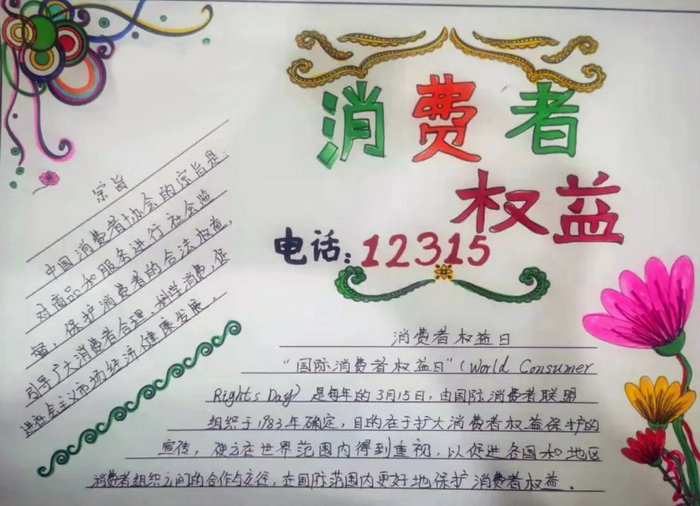 消费者
权益
电话:12315
宗旨
中国消费者协会的宗旨是:
对商品和服务进行社会监
督,保护消费者的合法权益,
引导广大消费者合理、科学消费,促
进社会主义市场经济健康发展。
消费者权益日
“国际消费者权益日”(World Consumer
Rights Day) 是每年的3月15日,由国际消费者联盟
组织于1983年确定,目的在于扩大消费者权益保护的
宣传,使之在世界范围内得到重视,以促进各国和地区
消费者组织之间的合作与交往,在国际范围内更好地保护消费者权益.